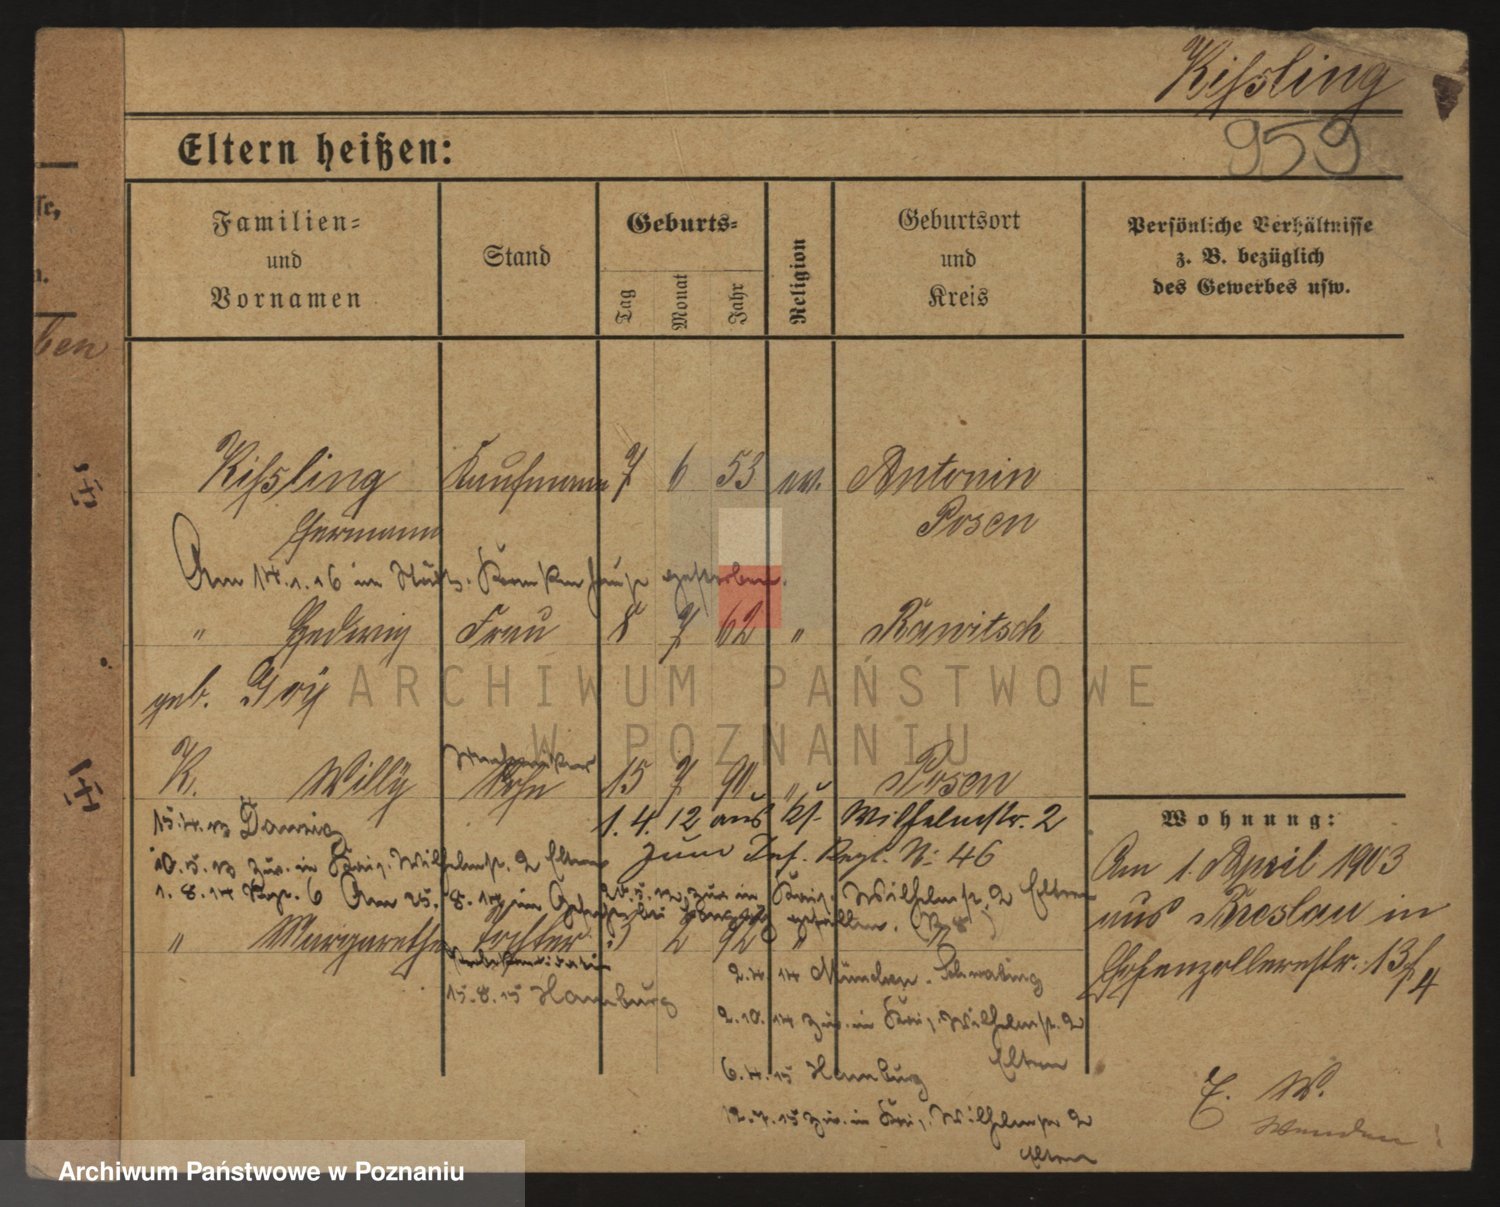 Kißling
959
Eltern heißen:
Familien-
und
Vornamen
Stand
Geburts-
Tag
Monat
Jahr
Religion
Geburtsort
und
Kreis
Persönliche Verhältnisse
z. B. bezüglich
des Gewerbes usw.
se,
n.
ben
Kißling Kaufmann 7 6 53 ev. Antonin
Hermann Posen
Am 14.1.16 im Städt. Krankenhause gestorben.
" Hedwig Frau 8 7 62 " Rawitsch
geb.
K. Willy Sohn 15 7 90 " Posen
15.4.13 Danzig
1.4.12 aus Wilhelmstr. 2
zum Inf. Regt. Nr. 46
10.5.13 zur. in Kais. Wilhelmstr. 2 Eltern
20.5.12 zur in Kais. Wilhelmstr. 2 Eltern
1.8.14 Rgt. 6 Am 25.8.14 im gefallen.
" Margarethe Tochter 2 92 "
15.8.15 Hamburg
2.4.14 München. Schwabing
2.10.14 zur. in Kais. Wilhelmstr. 2
Eltern
6.4.15 Hamburg
12.7.15 zur. in Kais. Wilhelmstr. 2
Eltern
Wohnung:
Am 1. April 1903
aus Breslau in
Hohenzollernstr. 13
E. W.
ARCHIWUM PAŃSTWOWE
W POZNANIU
Archiwum Państwowe w Poznaniu